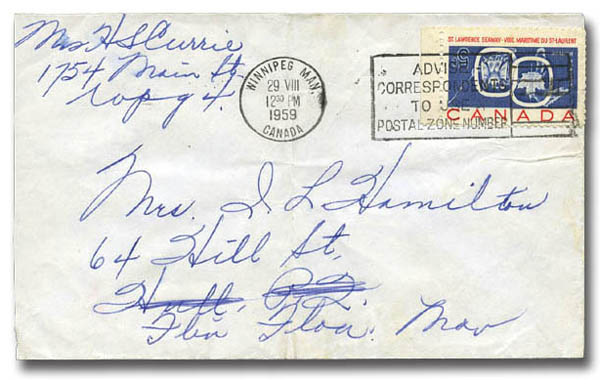 Mrs H S Currie
1754 Main St
Wpg 4.
WINNIPEG MAN.
29 VIII
12 30 PM
1959
CANADA
ADVISE
CORRESPONDENTS
TO USE
POSTAL ZONE NUMBER
ST LAWRENCE SEAWAY - VOIE MARITIME DU ST-LAURENT
5
CANADA
Mrs. I L Hamilton
64 Hill St,
Hull, P.Q.
Flin Flon. Man